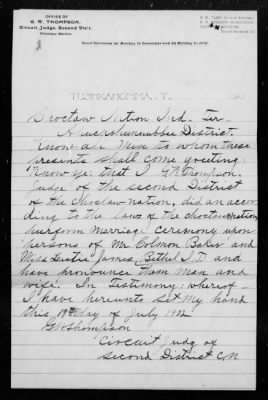 OFFICE OF
G. W. THOMPSON,
Circuit Judge, Second Dist.
Choctaw Nation.
Court Convenes 1st Monday in December and 2d Monday in July
TUSHKAHOMMA, I. T., 190
Choctaw Nation Ind. Ter
Know all Men to whom these
presents shall come greeting:
Know ye: that I GW Thompson,
Judge of the second District
of the Choctaw nation, did an accor
ding to the Laws of the choctaw Nation,
purform Marriage Ceremony upon
persons of Mr Colmon Baker and
Miss James, Bethel I.T and
have pronounce them man and
wife. In Testimony: whereof -
I have hereunto set my hand
this 19th day of July 1902
GW Thompson
Circuit judg of
second District C N